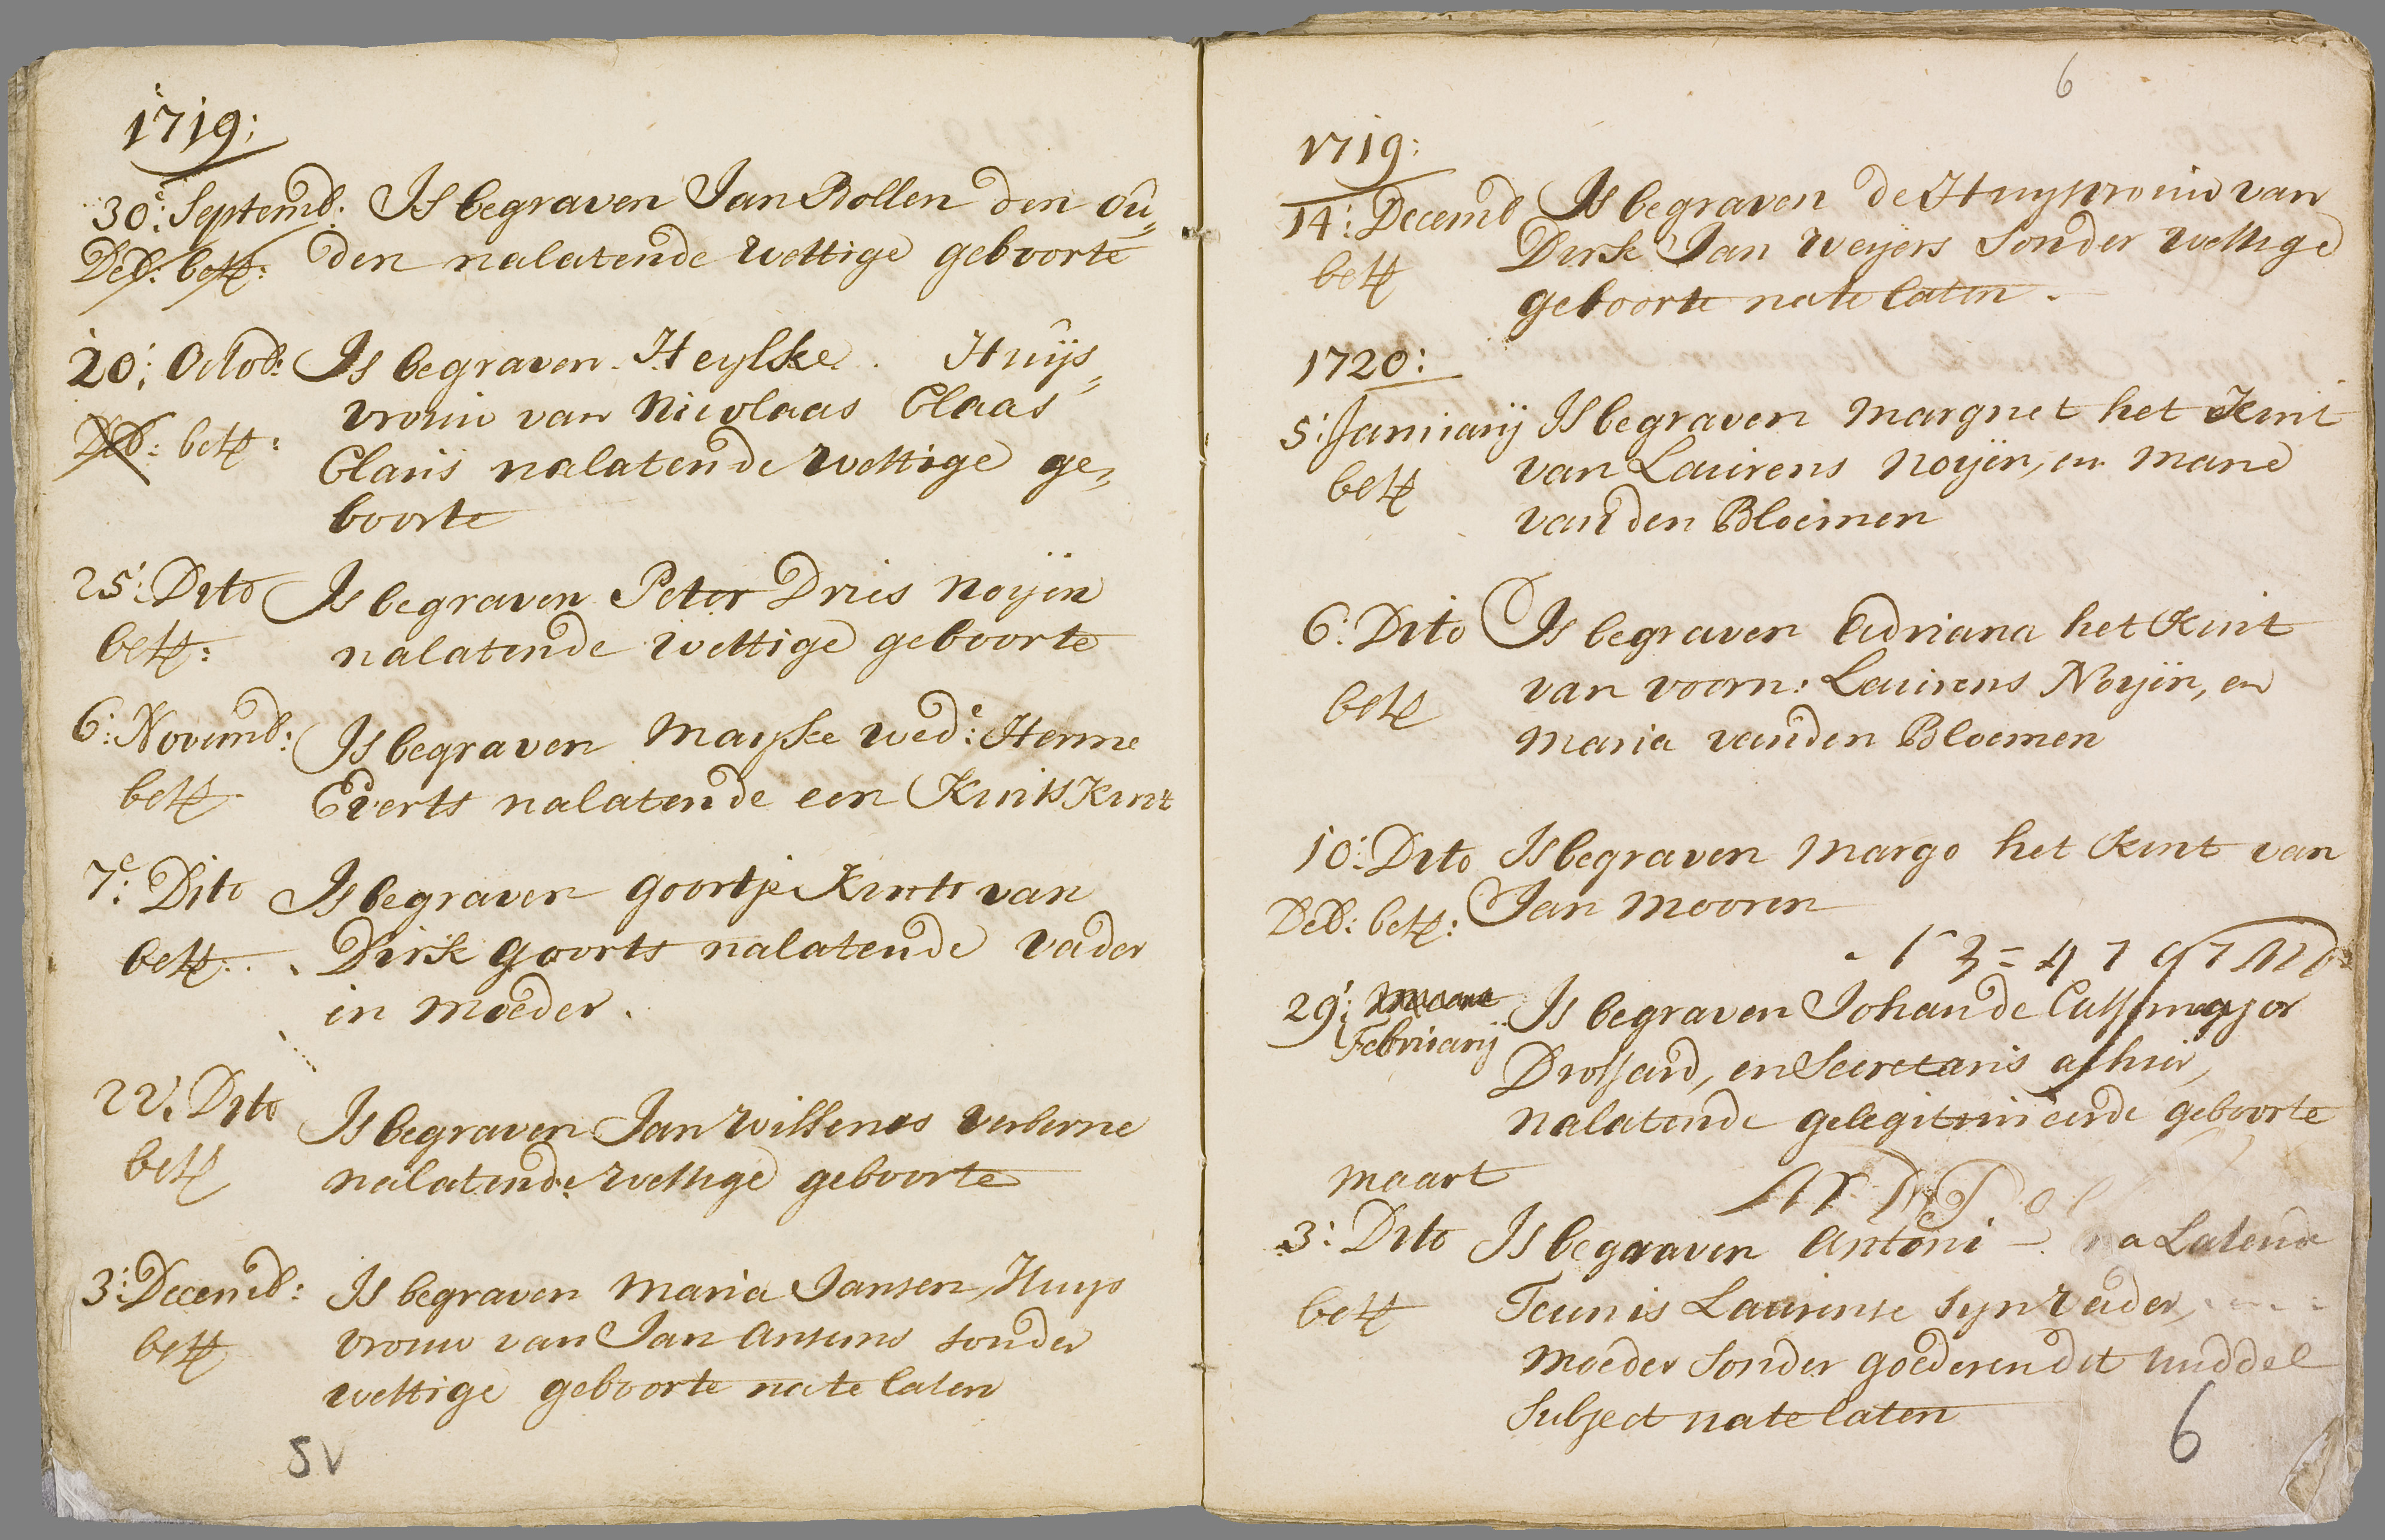 1719:
30e: Septemb: Is begraven Jan Bollen den ou„
Ded: bett: den nalatende wettige geboorte
20: Octob: Is begraven Heylske Huijs„
vrouw van Nicolaas Claas
Ded: bett:
Claus nalatende wettige ge„
boorte
25: Dito Is begraven Peter Dries Noijen
bett: nalatende wettige geboorte
6: Novemb: Is begraven Mayke wede: Henne
bett Everts nalatende een Kints Kint
7e: Dito Is begraven Goortje Kint van
bett: Dirk Goorts nalatende vader
en moeder.
22: Dito Is begraven Jan Willems Verberne
bett nalatende wettige geboorte
3: Decemb: Is begraven Maria Jansen Huys
bett vrouw van Jan Ansems sonder
wettige geboorte nate laten
5V
6
1719:
14: Decemb Is begraven de Huysvrouw van
Dirk Jan Weyers sonder wettige
bett
geboorte nate laten.
1720:
5: Januarij Is begraven Margriet het Kint
bett van Laurens Noijen, en Marie
van den Bloemen
6: Dito Is begraven Adriana het Kint
bett van voorn: Laurens Noyen, en
Maria vanden Bloemen
10: Dito Is begraven Margo het Kint van
Ded: bett: Jan Mooren
29: Maart Is begraven Johan de
Februarij
Drossard, en Secretaris alhier,
nalatende gelegitimeerde geboorte
maart
3: Dito Is begraven Antoni – na Latende
bett Teunis Laurense syn vader,
moeder sonder goederen dit middel
Subject nate laten
6